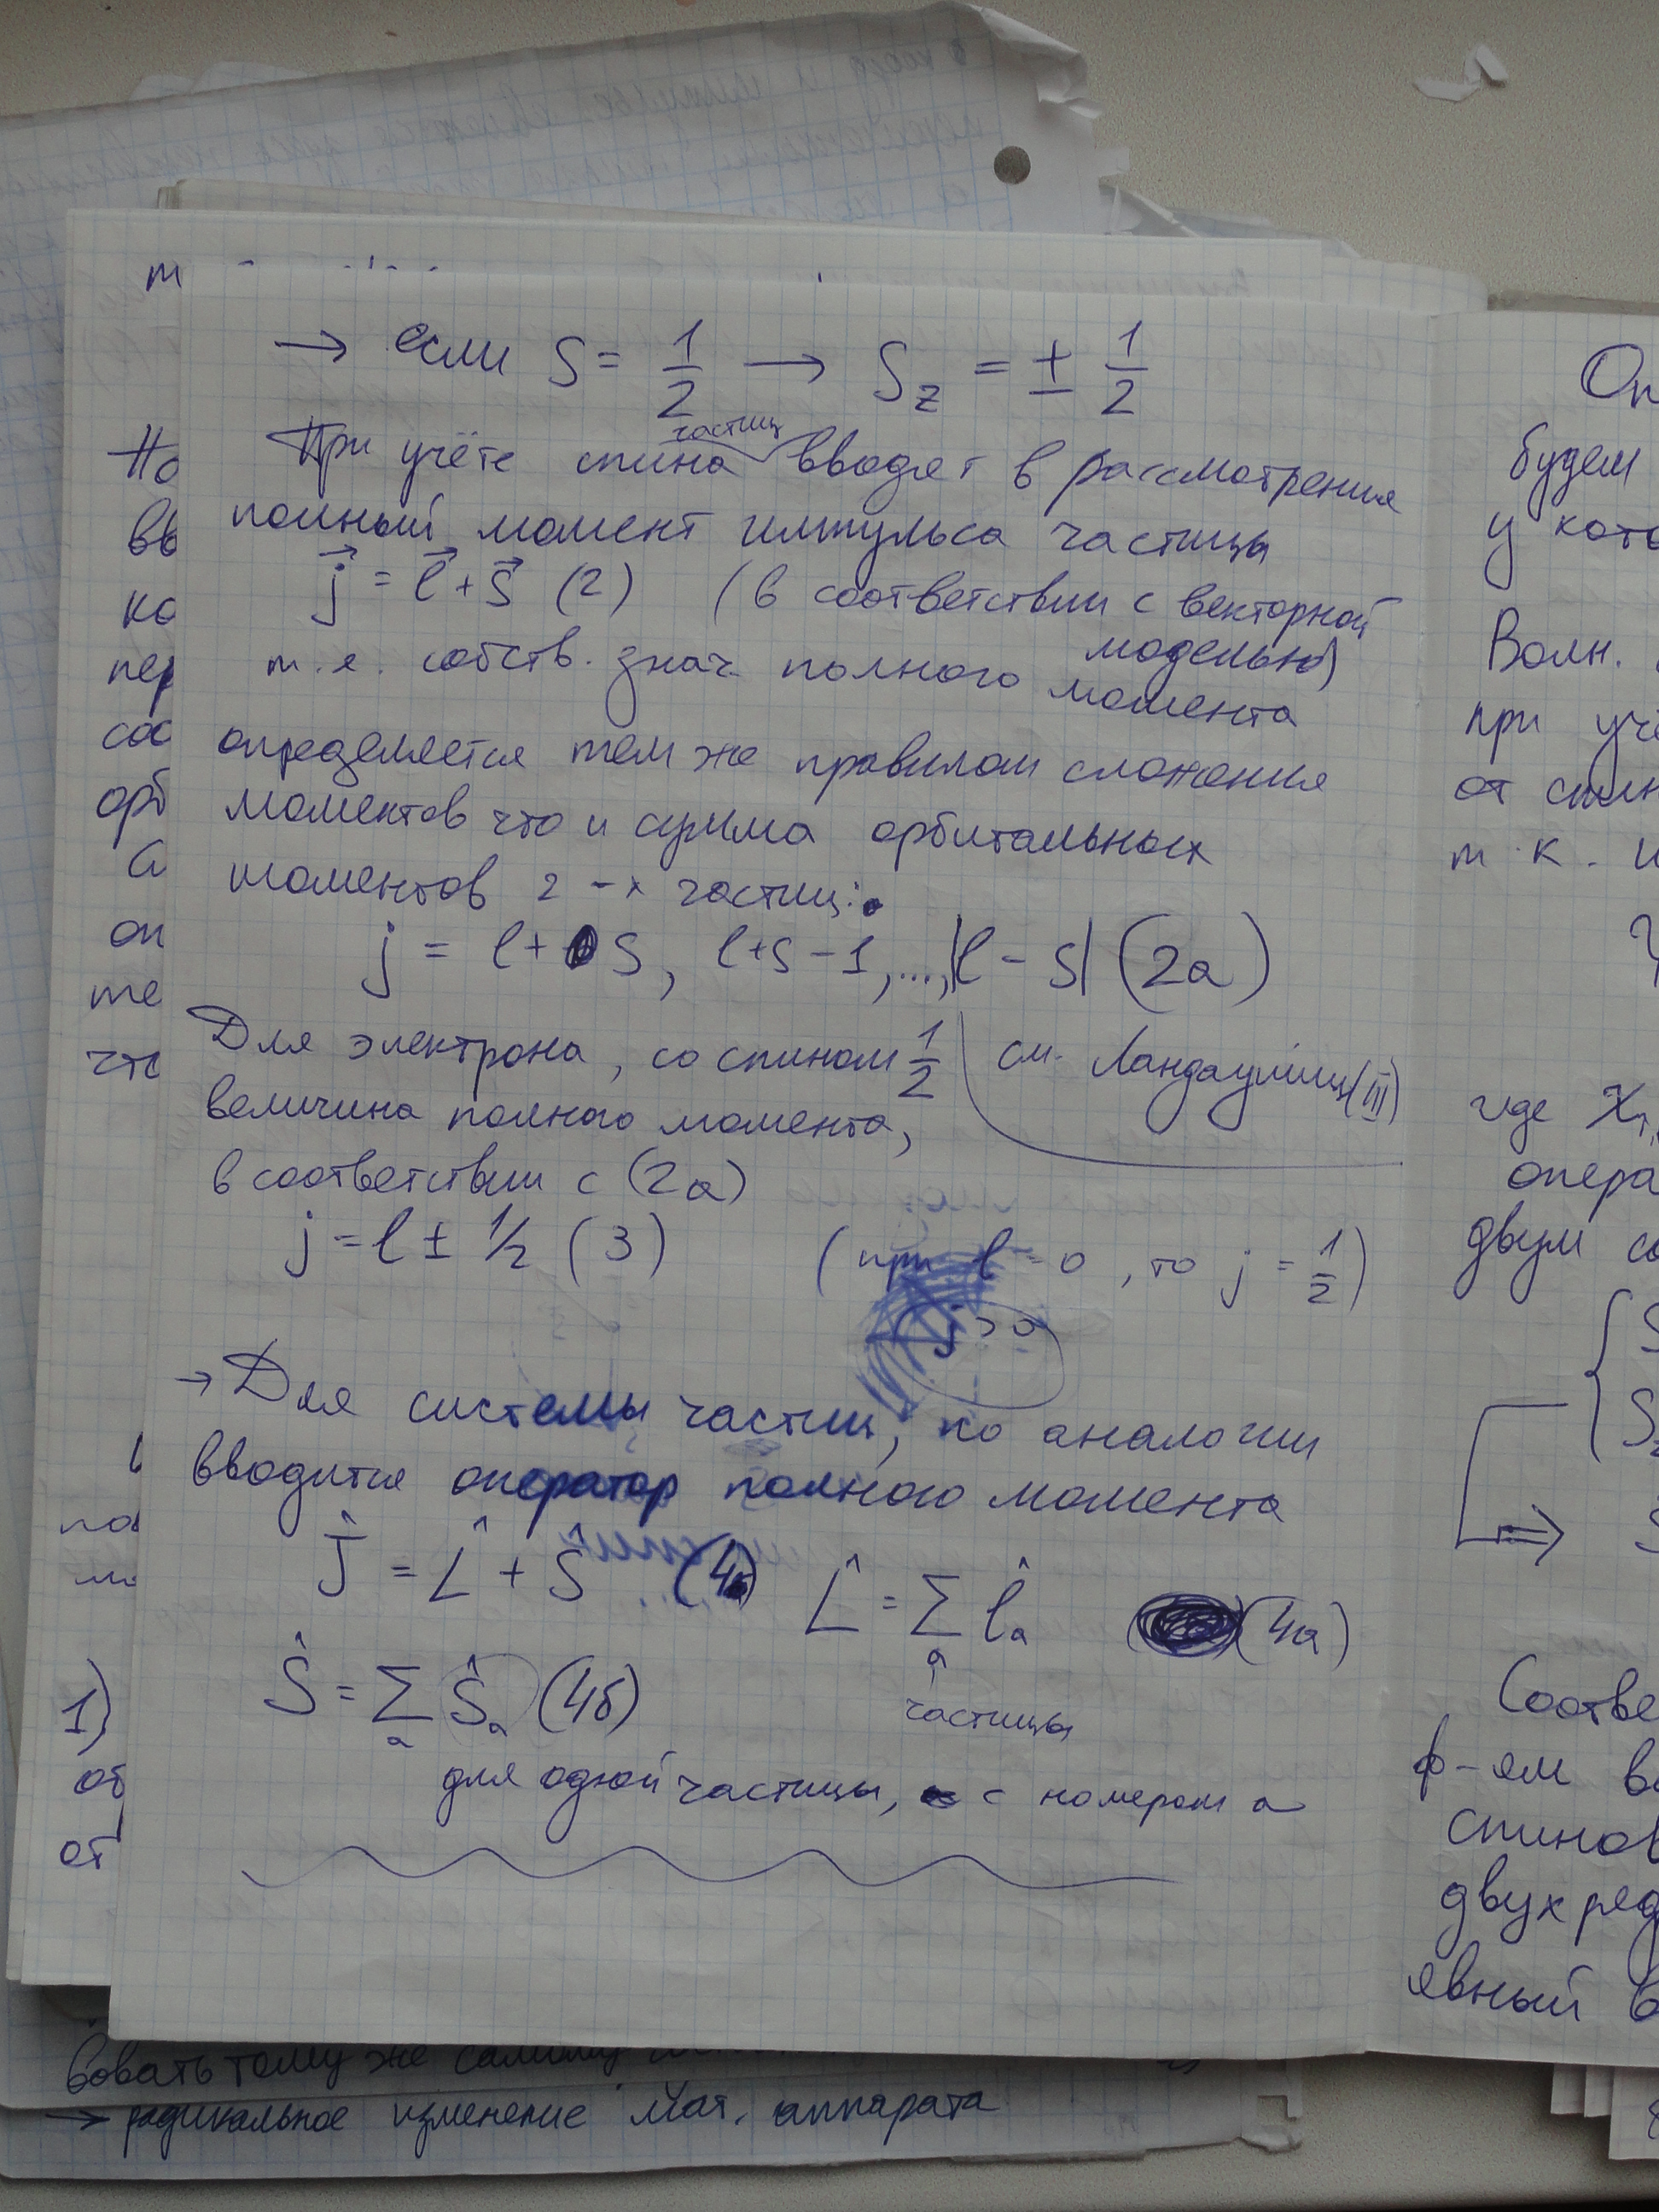 → если S = 1/2 → S_z = ± 1/2
частиц
При учёте спина вводят в рассмотрение
полный момент импульса частицы
j⃗ = l⃗ + s⃗ (2) (в соответствии с векторной
моделью)
т.е. собств. знач. полного момента
определяется тем же правилом сложения
моментов что и сумма орбитальных
моментов 2-х частиц:
j = l + s, l+s-1, ..., |l - s| (2а)
Для электрона, со спином 1/2
см. (III)
величина полного момента,
в соответствии с (2а)
j = l ± 1/2 (3) (при l = 0, то j = 1/2)
j > 0
→ Для системы частиц, по аналогии
вводится оператор полного момента
Ĵ = L̂ + Ŝ (4) L̂ = Σ_a l̂_a (4а)
Ŝ = Σ_a ŝ_a (4б)
частицы
для одной частицы, с номером a
Оп
будем
у кото
Волн.
при учё
от спин
т.к.
где
опера
двум со
Соотве
ф-ем в
спинов
двух ряд
явный в
т
Но
вв
ко
пер
соо
орб
оп
те
что
1)
от
от
вовать тому же самому
→ радикальное изменение мат. аппарата